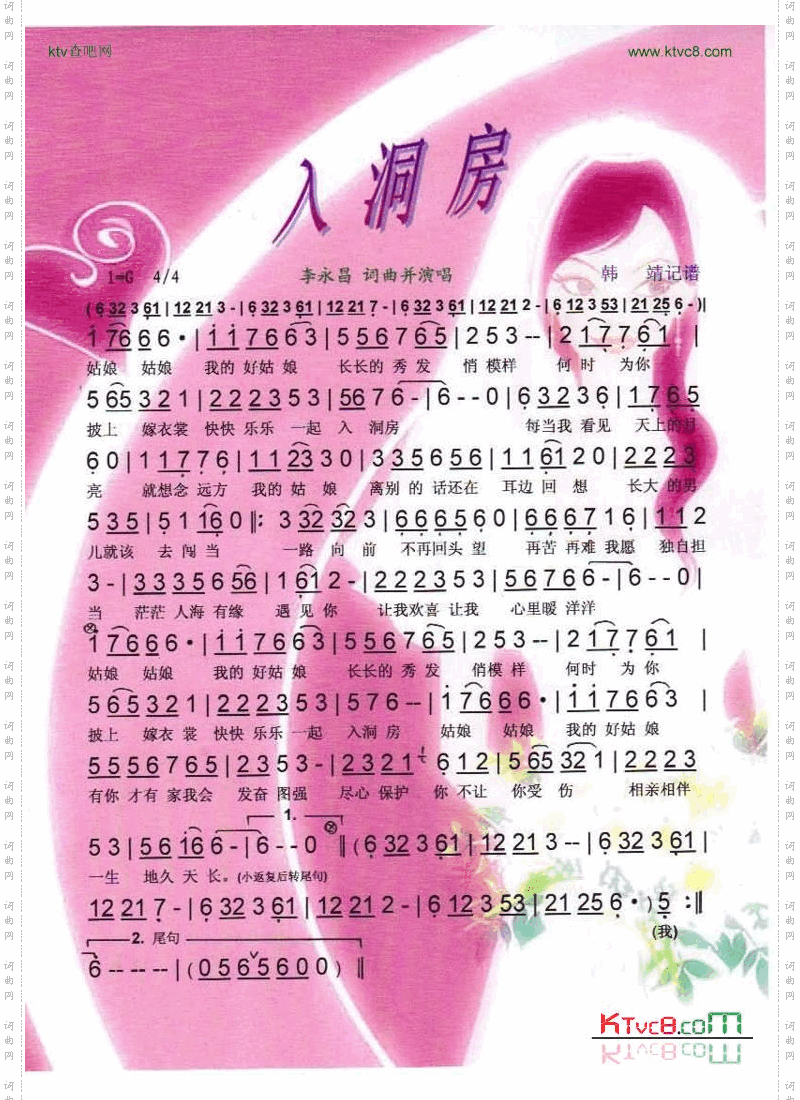 ktv查吧网 www.ktvc8.com
入洞房
1=G 4/4 李永昌 词曲并演唱 韩 靖记谱
(6 32 3 61|12 21 3-|6 32 3 61|12 21 7-|6 32 3 61|12 21 2-|6 12 3 53|21 25 6-)|
1 7666·|1176663|5567765|253--|2177761|
姑娘 姑娘 我的 好姑 娘 长长的 秀 发 悄 模样 何 时 为你
565321|2223353|5676-|6--0|63236|1765
披上 嫁衣裳 快快 乐乐 一起 入 洞房 每当我 看见 天上的月
60|11776|112330|335656|116120|2223
亮 就想念 远方 我的 姑 娘 离别 的 话还在 耳边 回 想 长大 的男
535|51160‖:332323|666560|6667 16|112
儿就该 去 闯 当 一路 向 前 不再回头 望 再苦 再难 我愿 独自担
3-|33356 56|1612-|222353|567666-|6--0|
当 茫茫 人海 有缘 遇 见 你 让我欢喜 让我 心里暖 洋洋
1 7666·|1176663|5567765|253--|2177761|
姑娘 姑娘 我的 好姑 娘 长长的 秀 发 悄模 样 何时 为 你
565321|222353|576--|17666·|117663|
披上 嫁衣 裳 快快 乐乐 一起 入洞 房 姑娘 姑娘 我的 好姑 娘
5556765|2353-|2321 612|565321|2223
有你 才有 家我会 发奋 图强 尽心 保护 你 不让 你受 伤 相亲 相伴
1.
53|561666-|6--0‖(6 32 3 61|12 21 3--|6 32 3 61|
一生 地久 天 长。(小返复后转尾句)
12 21 7-|6 32 3 61|12 21 2-|6 12 3 53|21 25 6·)5:‖
2. 尾句 (我)
6----|(05656 00)‖
KTvc8.com